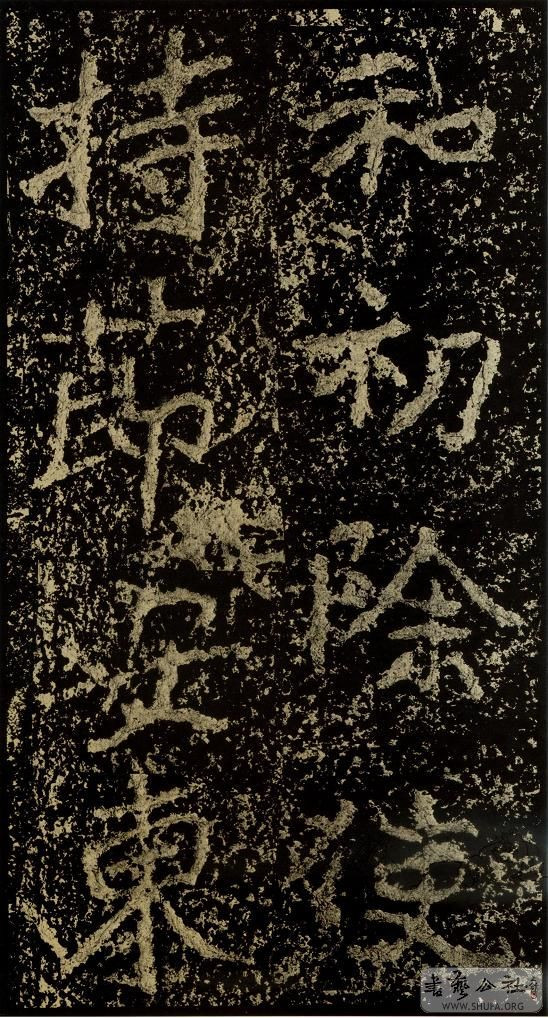 和初除使
持節東
書藝公社
WWW.SHUFA.ORG